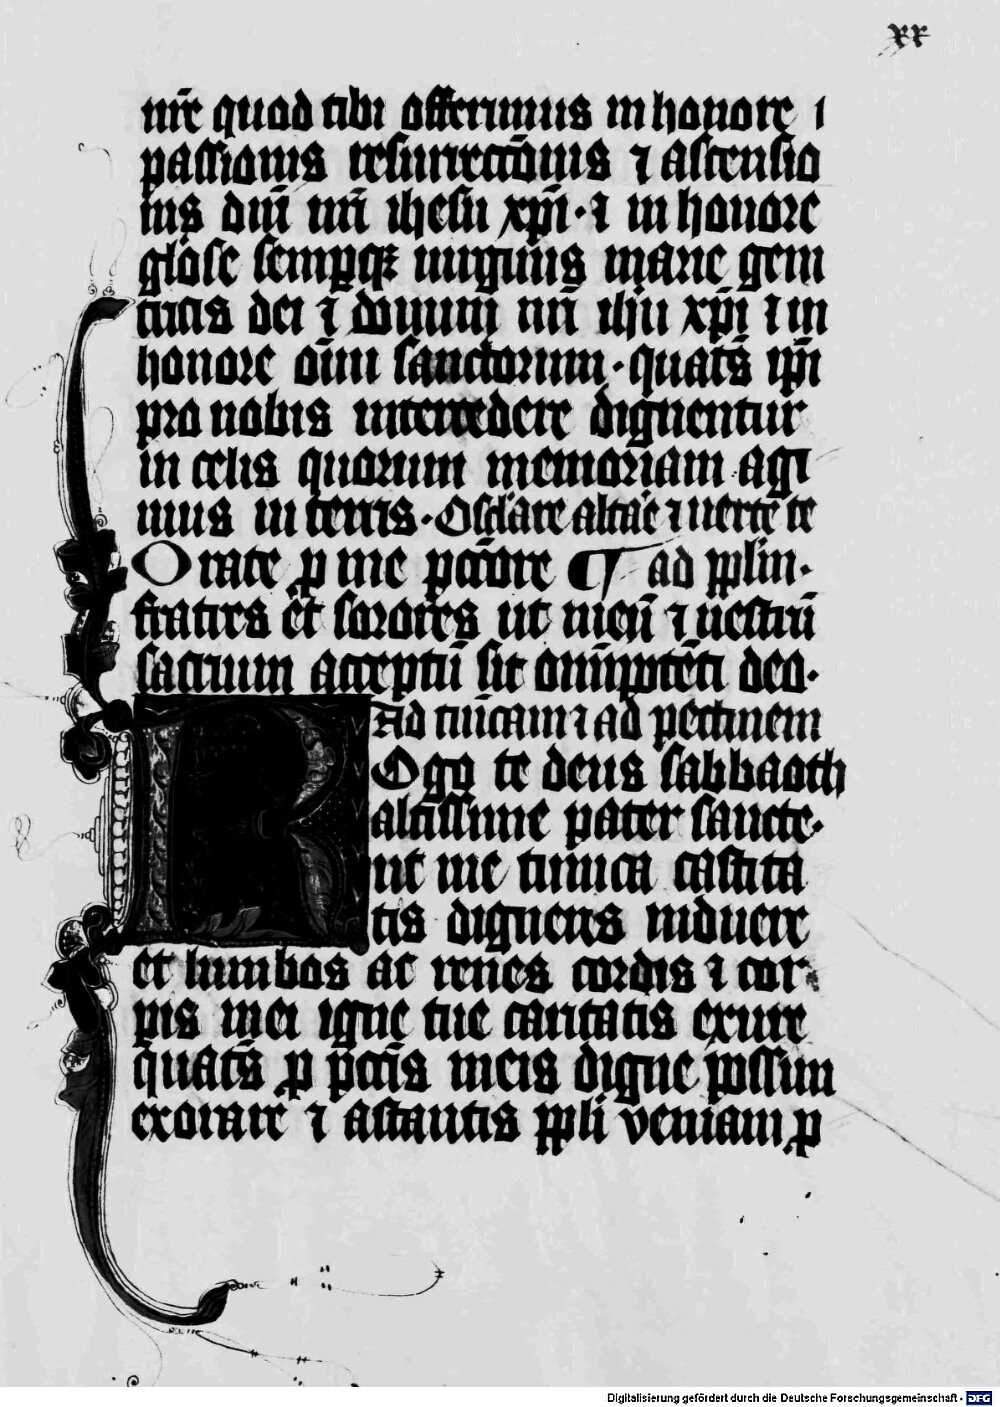 xx
nr̄e quod tibi offerimus in honore
passionis resurrectōnis ⁊ ascensio
nis dn̄i nr̄i ihesu xp̄i · ⁊ in honore
glōse semperqꝫ uirginis marie geni
tricis dei ⁊ domini nr̄i ihū xp̄i ⁊ in
honore om̄i sanctorum · quatꝰ ip̄i
pro nobis intercedere dignentur
in celis quorum memoriam agi
mus in terris · Osclare altāe ⁊ uerte te
Orate ꝓ me pctōre ¶ ad pplm̄ ·
fratres et sorores ut meū ⁊ uestrū
sacrium acceptū sit omīpotēti deo ·
Ad tunicam ⁊ ad pectinem
ROgo te deus sabbaoth
altissime pater sancte ·
ut me tunica castita
tis digneris induere
et lumbos ac renes cordis ⁊ cor
pis mei igne tue caritatis exure
quatꝰ ꝓ pctīs meis digne possim
exorare ⁊ astantis ppli veniam ꝑ
Digitalisierung gefördert durch die Deutsche Forschungsgemeinschaft - DFG